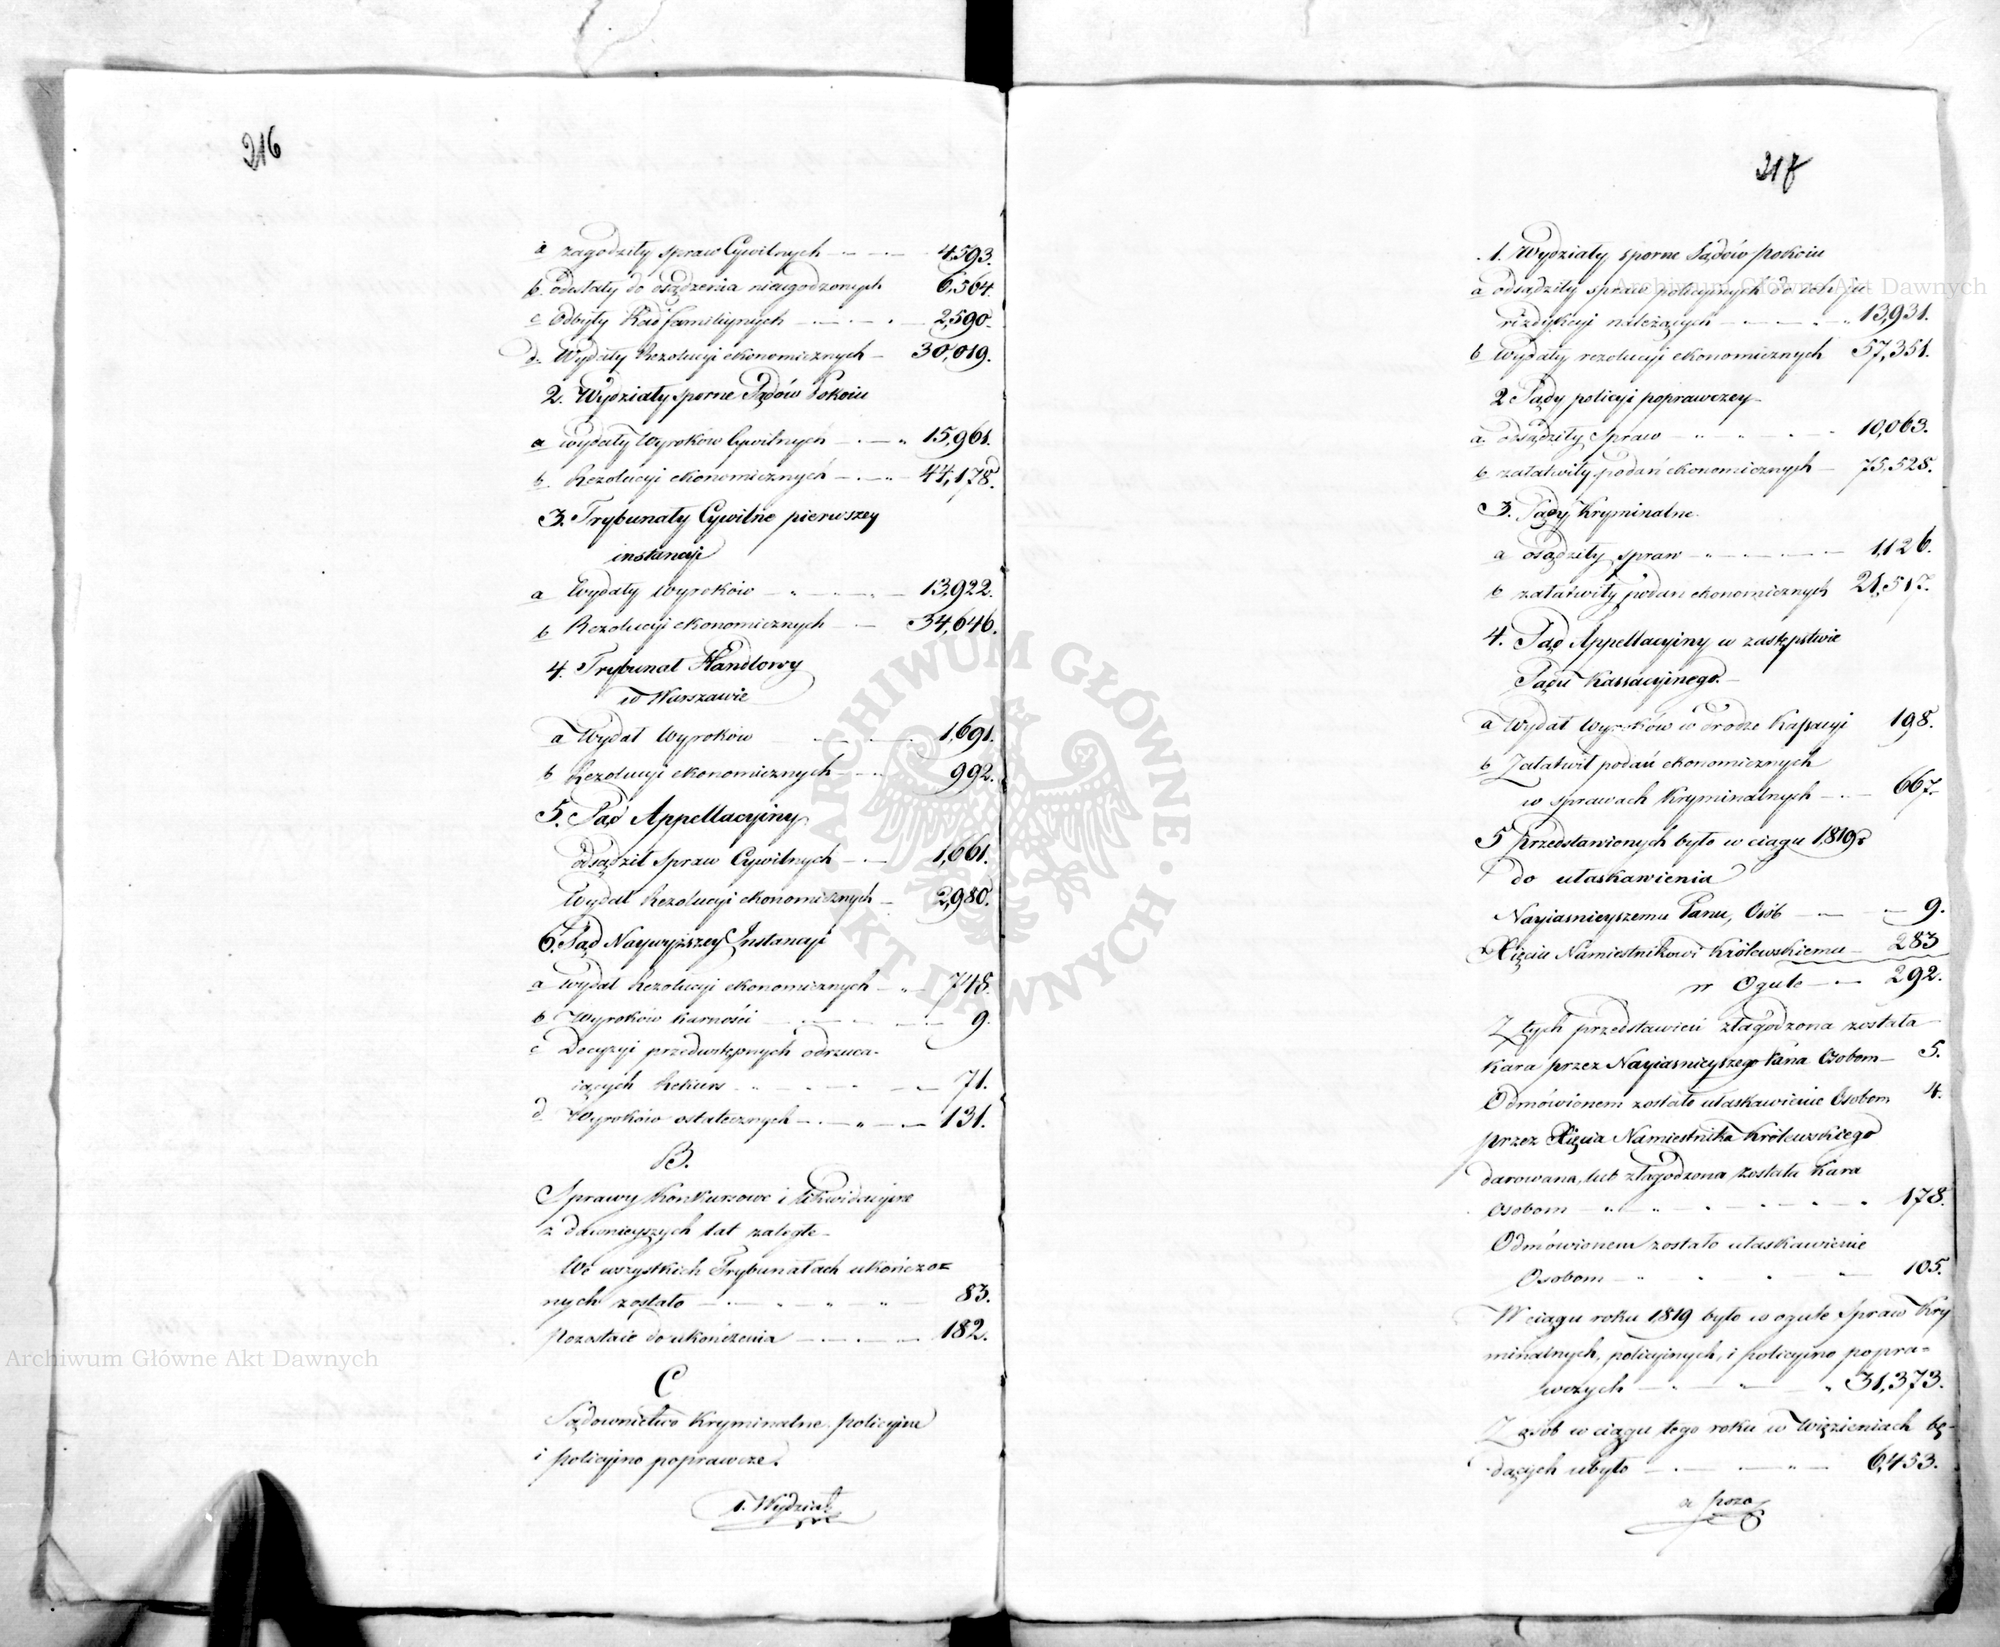 216
a zagodziły spraw Cywilnych 4,593.
b. odesłały do osądzenia nieugodzonych 6,564.
c Odbyły Rad familiynych 2,590.
d. Wydały Rezolucyi ekonomicznych 30,019.
2. Wydziały sporne Sądów Pokoiu
a wydały Wyroków Cywilnych 15,961.
b. Rezolucyi ekonomicznych 44,178.
3. Trybunały Cywilne pierwszey
instancyi
a Wydały Wyroków 13,922.
b Rezolucyi ekonomicznych 34,646.
4. Trybunał Handlowy
w Warszawie
a Wydał Wyroków 1,691.
b Rezolucyi ekonomicznych 992.
5. Sąd Appellacyiny
Osądził spraw Cywilnych 1,661.
Wydał Rezolucyi ekonomicznych 2,980.
6. Sąd Naywyższey Instancyi
a wydał Rezolucyi ekonomicznych 748.
b Wyroków karności 9.
c Decyzyi przedwstępnych odrzuca-
iących Rekurs 71.
d Wyroków ostatecznych 131.
B.
Sprawy Konkursowe i likwidacyine
z dawnieyszych lat zaległe
We wszystkich Trybunałach ukończo=
nych zostało 83.
Pozostaie do ukończenia 182.
C
Sądownictwo Kryminalne, policyine
i policyino poprawcze.
1. Wydziały
217
1. Wydziały sporne Sądów Pokoiu
a osądziły spraw policyinych do ich ju
rizdykcyi należących 13,931.
b Wydały rezolucyi ekonomicznych 57,351.
2 Sądy policyi poprawczey
a. osądziły Spraw 10,063.
b załatwiły podań ekonomicznych 75,528.
3. Sądy Kryminalne
a osądziły spraw 1,126.
b załatwiły podań ekonomicznych 21,517.
4. Sąd Appellacyiny w zastępstwie
Sądu Kassacyinego.
a Wydał Wyroków w drodze Kassacyi 198.
b Załatwił podań ekonomicznych
w sprawach Kryminalnych 667.
5 Przedstawionych było w ciągu 1819 r
do ułaskawienia
Nayiasnieyszemu Panu, Osób 9.
Xięciu Namiestnikowi Królewskiemu 283
w Ogule 292.
Z tych przedstawień złagodzona została
kara przez Nayiasnieyszego Pana Osobom 5.
Odmówionem zostało ułaskawienie Osobom 4.
przez Xięcia Namiestnika Królewskiego
darowana, lub złagodzona została Kara
Osobom 178.
Odmówionem zostało ułaskawienie
Osobom 105.
W ciągu roku 1819 było w ogule Spraw Kry
minalnych, policyinych, i policyino popra=
wczych 31,373.
Z osób w ciągu tego roku w Więzieniach bę-
dących ubyło 6,453.
a poza
Archiwum Główne Akt Dawnych
Archiwum Główne Akt Dawnych
ARCHIWUM GŁÓWNE · AKT DAWNYCH ·